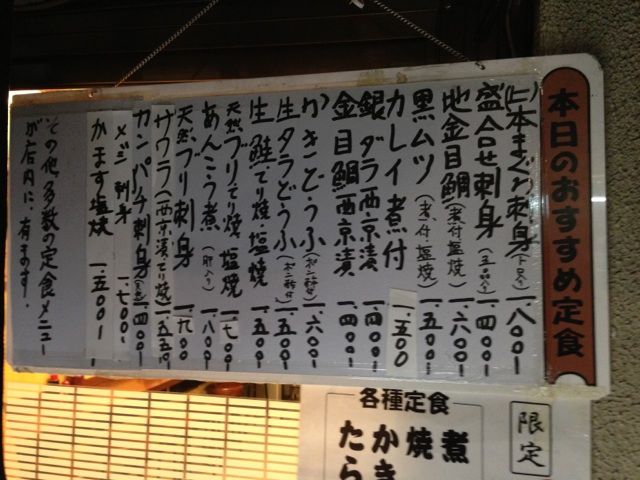 本日のおすすめ定食
本まぐろ刺身 一.八〇〇
盛合せ刺身(五品入り) 一.四〇〇
地金目鯛(煮付塩焼) 一.六〇〇
黒ムツ(煮付・塩焼) 一.五〇〇
カレイ煮付 一.五〇〇
銀ダラ西京漬 一.四〇〇
金目鯛西京漬 一.四〇〇
かきどうふ 一.六〇〇
生タラどうふ 一.五〇〇
生鮭てり焼・塩焼 一.五〇〇
天然ブリてり焼 塩焼 一.七〇〇
あんこう煮(肝入り) 一.八〇〇
天然ブリ刺身 一.八〇〇
サワラ(西京漬てり焼) 一.五五〇
カンパチ刺身
刺身 一.七〇〇
かます塩焼 一.五〇〇
その他多数の定食メニュー
が店内に有ます.
限定
各種定食
煮
焼
かき
たら